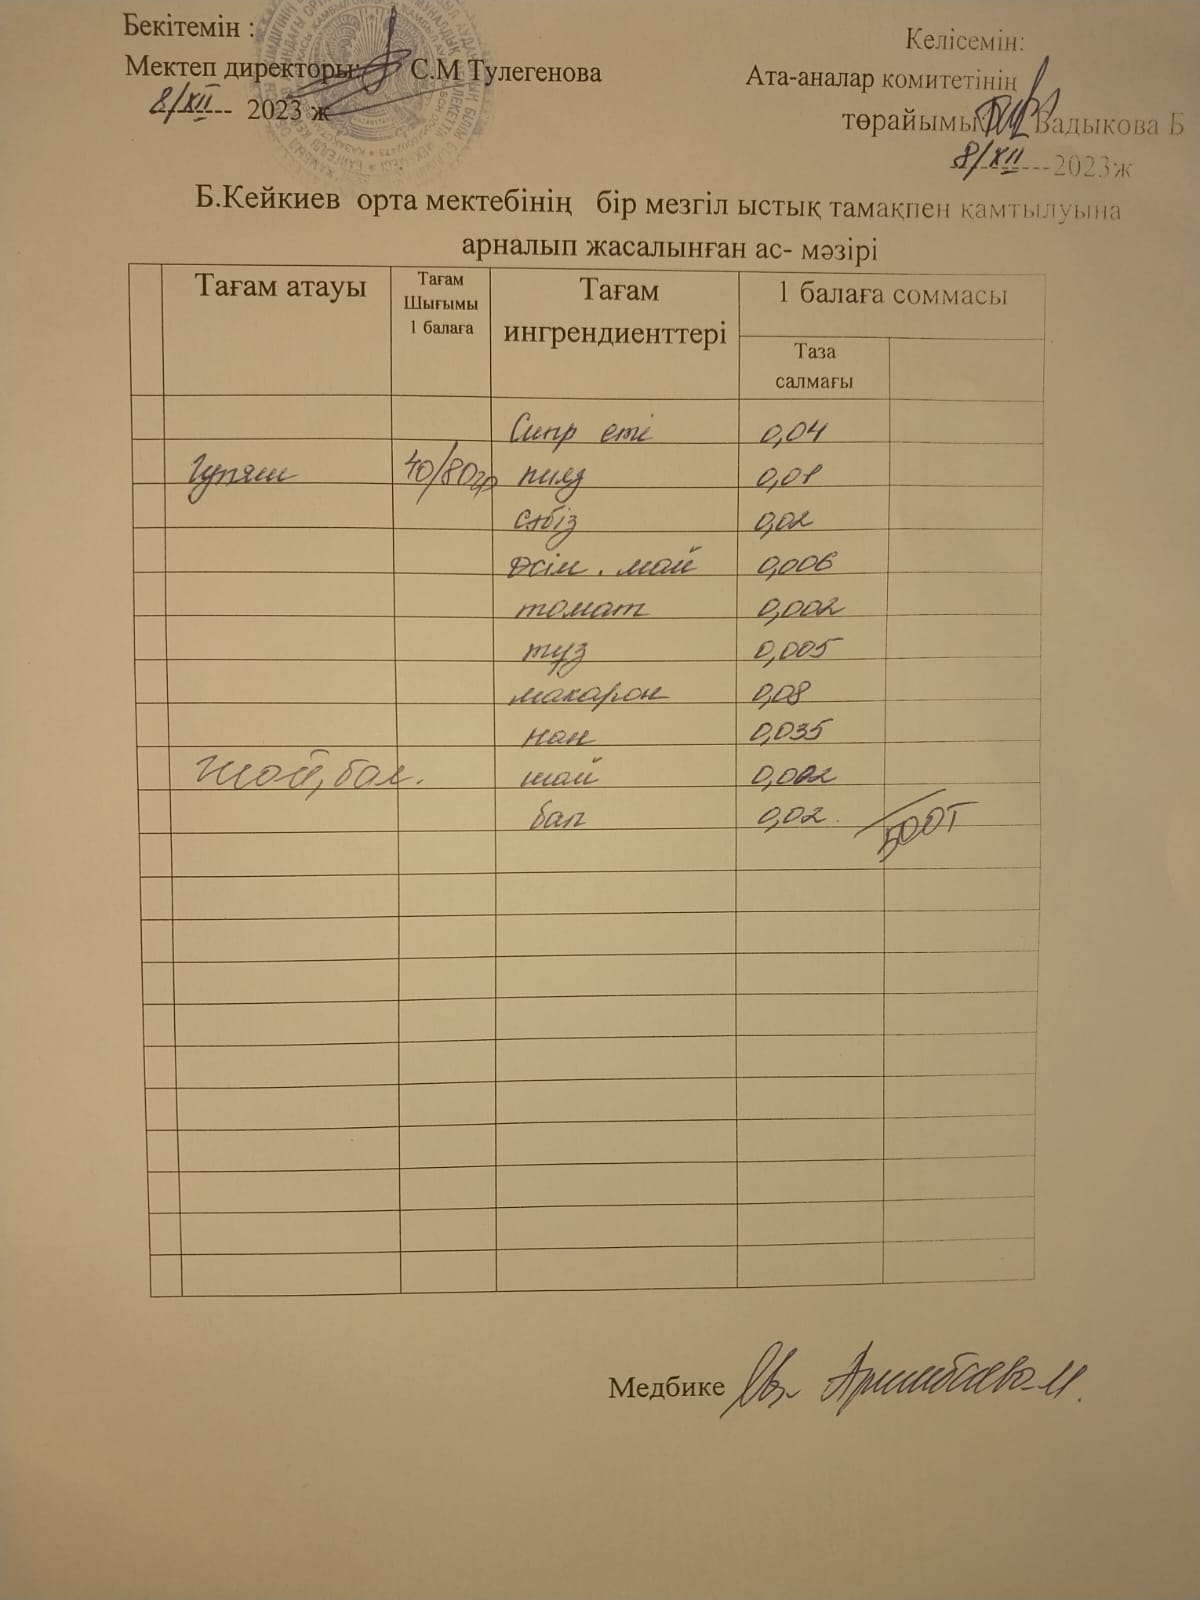 Бекітемін :
Мектеп директоры: С.М Тулегенова
8/XII 2023 ж
Келісемін:
Ата-аналар комитетінің
төрайымы Бадыкова Б
8/XII 2023ж
Б.Кейкиев орта мектебінің бір мезгіл ыстық тамақпен қамтылуына
арналып жасалынған ас- мәзірі
Тағам атауы
Тағам
Шығымы
1 балаға
Тағам
ингрендиенттері
1 балаға соммасы
Таза
салмағы
Сиыр еті 0,04
Гуляш 40/80гр пияз 0,01
сәбіз 0,02
өсім. май 0,006
томат 0,002
тұз 0,005
макарон 0,08
нан 0,035
Шай, бал. шай 0,002
бал 0,02.
500Т
Медбике